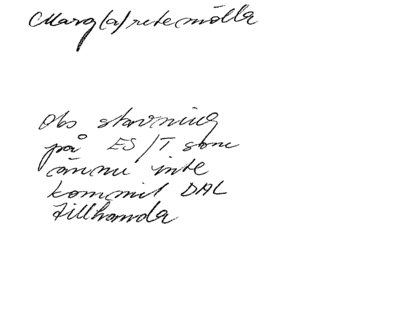 Marg(a)retemölla
Obs stavning
på ES/T som
ännu inte
kommit DAL
tillhanda